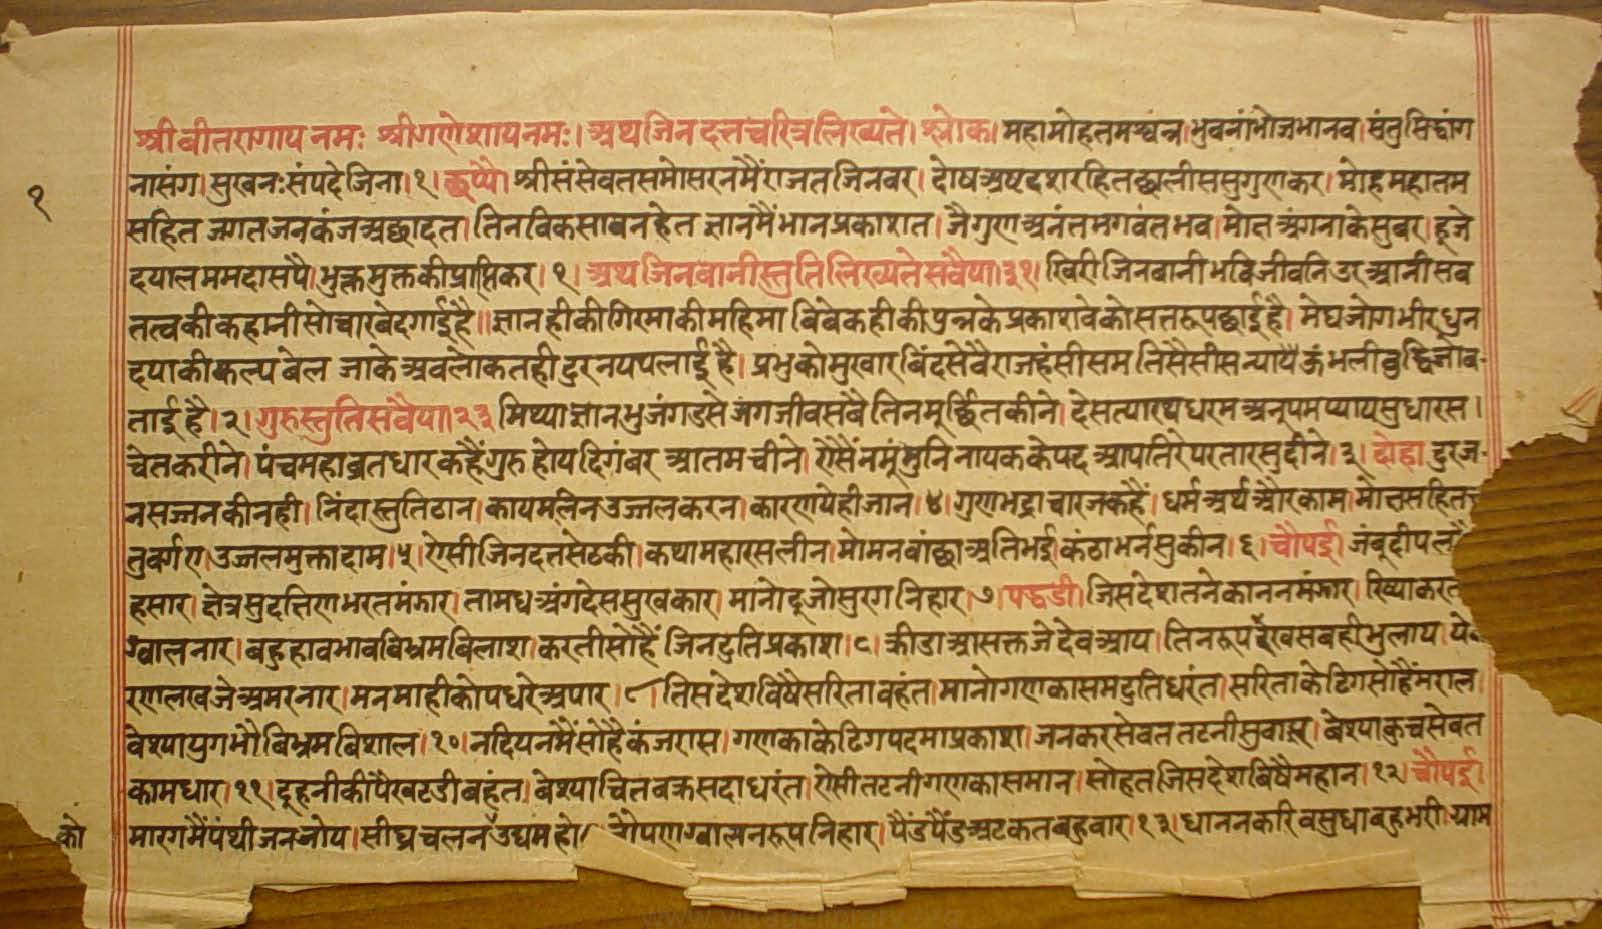 श्रीवीतरागाय नमः श्रीगणेशायनमः। अथजिनदत्तचरित्रलिख्यते। श्लोक। महामोहतमश्छन्न। भुवनांभोजभानव। संतुसिद्धांग
नासंग। सुखनःसंपदेजिना।१। छप्पै। श्रीसंसेवतसमोसरनमैंराजतजिनवर। दोषअष्टदशरहितछालीससुगुणकर। मोहमहातम
सहित जगतजनकंजअछादत। तिनविकसावनहेत ज्ञानमैंभानप्रकाशत। जैगुणअनंतभगवंतभव। मोक्षअंगनाकेसुबर। हूजे
दयालममदासपै। भुक्तमुक्तकीप्राप्तिकर।१। अथजिनवानीस्तुतिलिख्यतेसवैया।३१। खिरीजिनवानीभविजीवनिउरआनीसब
तत्वकीकहानीसोच्चारबेदगाईहै॥ज्ञानहीकीगिरमाकीमहिमा बिबेकहीकीपुन्नकेप्रकाशवेकोसत्तरूपछाईहै। मेघजोगभीरधुन
दयाकीकल्पबेल जाकेअवलोकतहीदुरनयपलाईहै। प्रभुकोमुखारबिंदसेवैराजहंसीसम तिसैसीसन्यायैऊंभलीबुद्धिजोब-
ताईहै।२। गुरुस्तुतिसवैया।२३ मिथ्याज्ञानभुजंगडसेजगजीवसबैतिनमूर्छितकीने। देसत्यारथधरमअनुपमप्यायसुधारस।
चेतकरीने। पंचमहाव्रतधारकहैंगुरुहोयदिगंबर आतमचीने। ऐसैंनमूंमुनिनायककेपद आपतिरेपरतारसुदीने।३। दोहा दुरज-
नसज्जनकीनही। निंदास्तुतिठान। कायमलिनउज्जलकरन। कारणयेहीजान।४। गुणभद्राचारजकहैं। धर्मअर्थऔरकाम। मोक्षसहित
तुवर्गए। उज्जलमुक्तादाम।५। ऐसीजिनदत्तसेठकी। कथामहारसलीन। मोमनवांछाअतिभई। कंठाभर्नसुकीन।६। चौपई। जंबूदीपल
हसार। क्षेत्रसुदक्षिणभरतमंझार। तामधअंगदेससुखकार। मानोदूजोसुरगनिहार।७। पद्धडी। जिसदेशतनेकाननमंझार। खिय्याकरत
ग्वालनार। बहुहावभावविभ्रमबिलाश। करतीसोहैंजिनदुतिप्रकाश।८। क्रीडाआसक्तजेदेवआय। तिनरूपदेखसबहीभुलाय। ये
रणलखजेअमरनार। मनमाहीकोपधरेअपार।९। तिसदेशविषैसरितावहंत। मानोगणकासमदुतिधरंत। सरिताकेढिगसोहैंमराल
वेश्यायुगभौबिभ्रमबिशाल।१०। नदियनमैंसोहैकंजरास। गणकाकेढिगपदमाप्रकाश। जनकरसेवततटनीसुवास। बेश्याकुचसेवत
कामधार।११। दूहनीकीपैखटडीबहंत। बेश्याचितबक्रसदाधरंत। ऐसीतटनीगणकासमान। सोहतजिसदेशबिषैमहान।१२। चौपई।
मारगमैंपंथीजनजोय। सीघ्रचलनउद्यमहो। गोपणग्वाल्यनरूपनिहार। पैंडपैंडअटकतबहुबार।१३। धाननकरिवसुधाबहुभरी। ग्राम
को
१